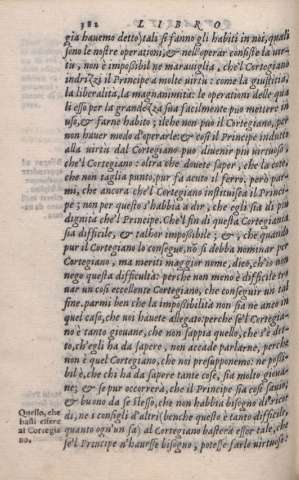 382 LIBRO
gia hauemo detto) tali si fanno gli habiti in noi, quali
sono le nostre operationi, & nell'operar consiste la uir-
tù, non è impossibil ne marauiglia, che'l Cortegiano
indrizzi il Principe a molte uirtù: come la giustitia,
la liberalità, la magnanimità: le operationi delle qua
li esso per la grandezza sua facilmente può mettere in
uso, & farne habito; ilche non può il Cortegiano, per
non hauer modo d'operarle: & cosi il Principe indutto
alla uirtù dal Cortegiano può diuenir piu uirtuoso
che'l Cortegiano: oltra che douete saper, che la cote,
che non taglia punto, pur fa acuto il ferro, però par-
mi, che ancora che'l Cortegiano instituisca il Princi-
pe; non per questo s'habbia a dir, che egli sia di piu
dignità che'l Principe. Che'l fin di questa Cortegiania
sia difficile, & talhor impossibile; & che quando
pur il Cortegiano lo consegue, nō si debba nominar per
Cortegiano, ma meriti maggior nome, dico, ch'io non
nego questa difficultà: perche non meno è difficile tro
uar un cosi eccellente Cortegiano, che conseguir un tal
fine. parmi ben che la impossibilità non sia ne anto in
quel caso, che uoi hauete allegato: perche se'l Cortegia
no è tanto giouane, che non sappia quello, che s'è det-
to, ch'egli ha da sapere, non accade parlarne, perche
non è quel Cortegiano, che noi presupponemo: ne possi-
bil è, che chi ha da sapere tante cose, sia molto gioua-
ne; & se pur occorrerà, che il Principe sia cosi sauio,
& buono da se stesso, che non habbia bisogno di ricor
di, ne i consigli d'altri (benche questo è tanto difficile,
quanto ogn'un sa) al Cortegiano basterà esser tale, che
se'l Principe n'hauesse bisogno, potesse farlo uirtuoso:
Quello, che
basti essere
al Cortegia
no.